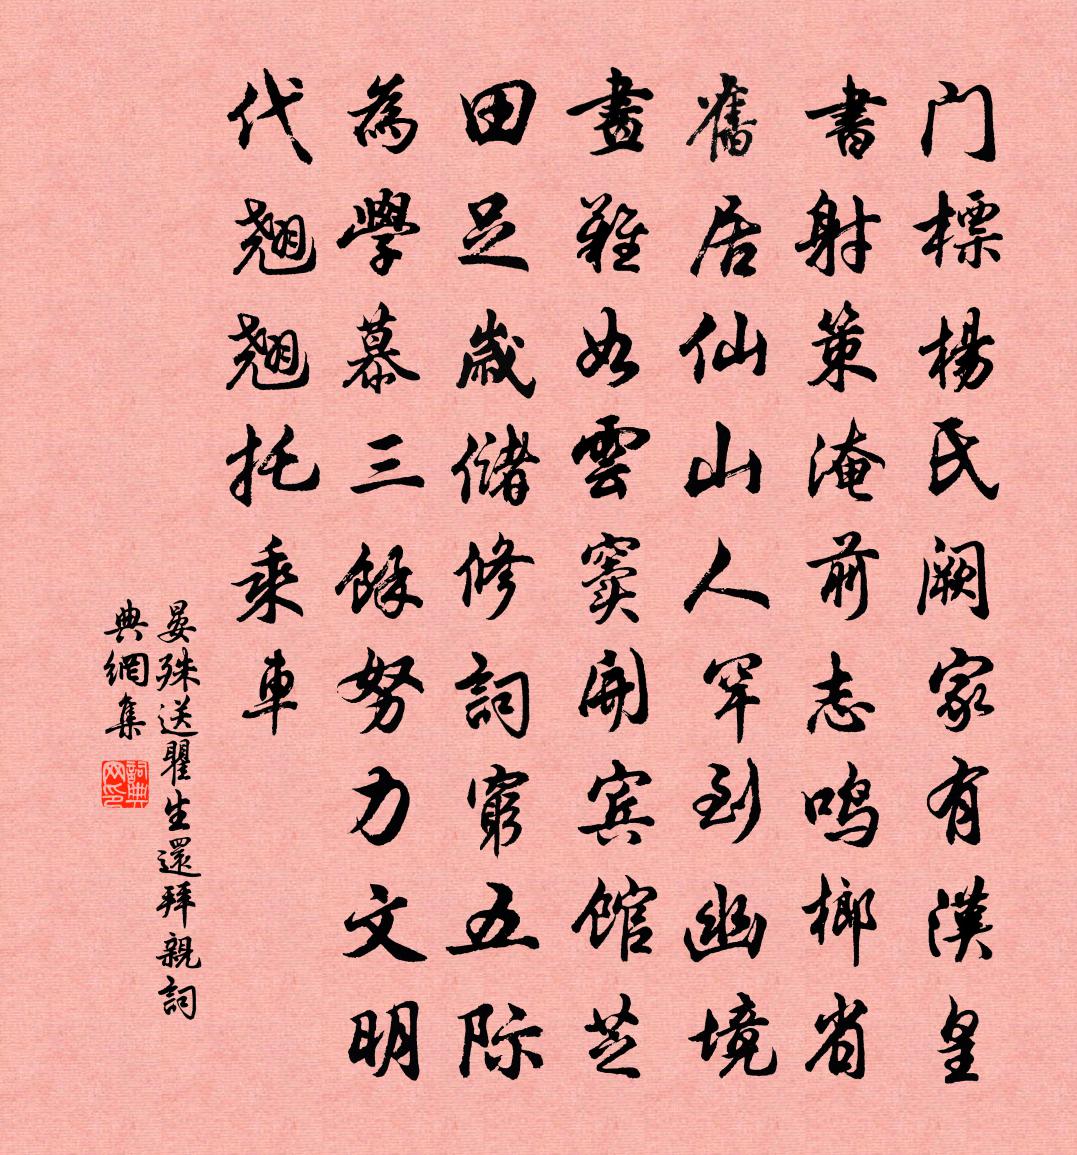 门標楊氏阙家有漢皇
書射策淹前志鸣榔省
舊居仙山人罕到幽境
畫難如雲窦開宾馆芝
田足歲儲修詞窮五际
為學慕三餘努力文明
代翹翹托乘車
晏殊送瞿生還拜親詞
典網集
詞典网印